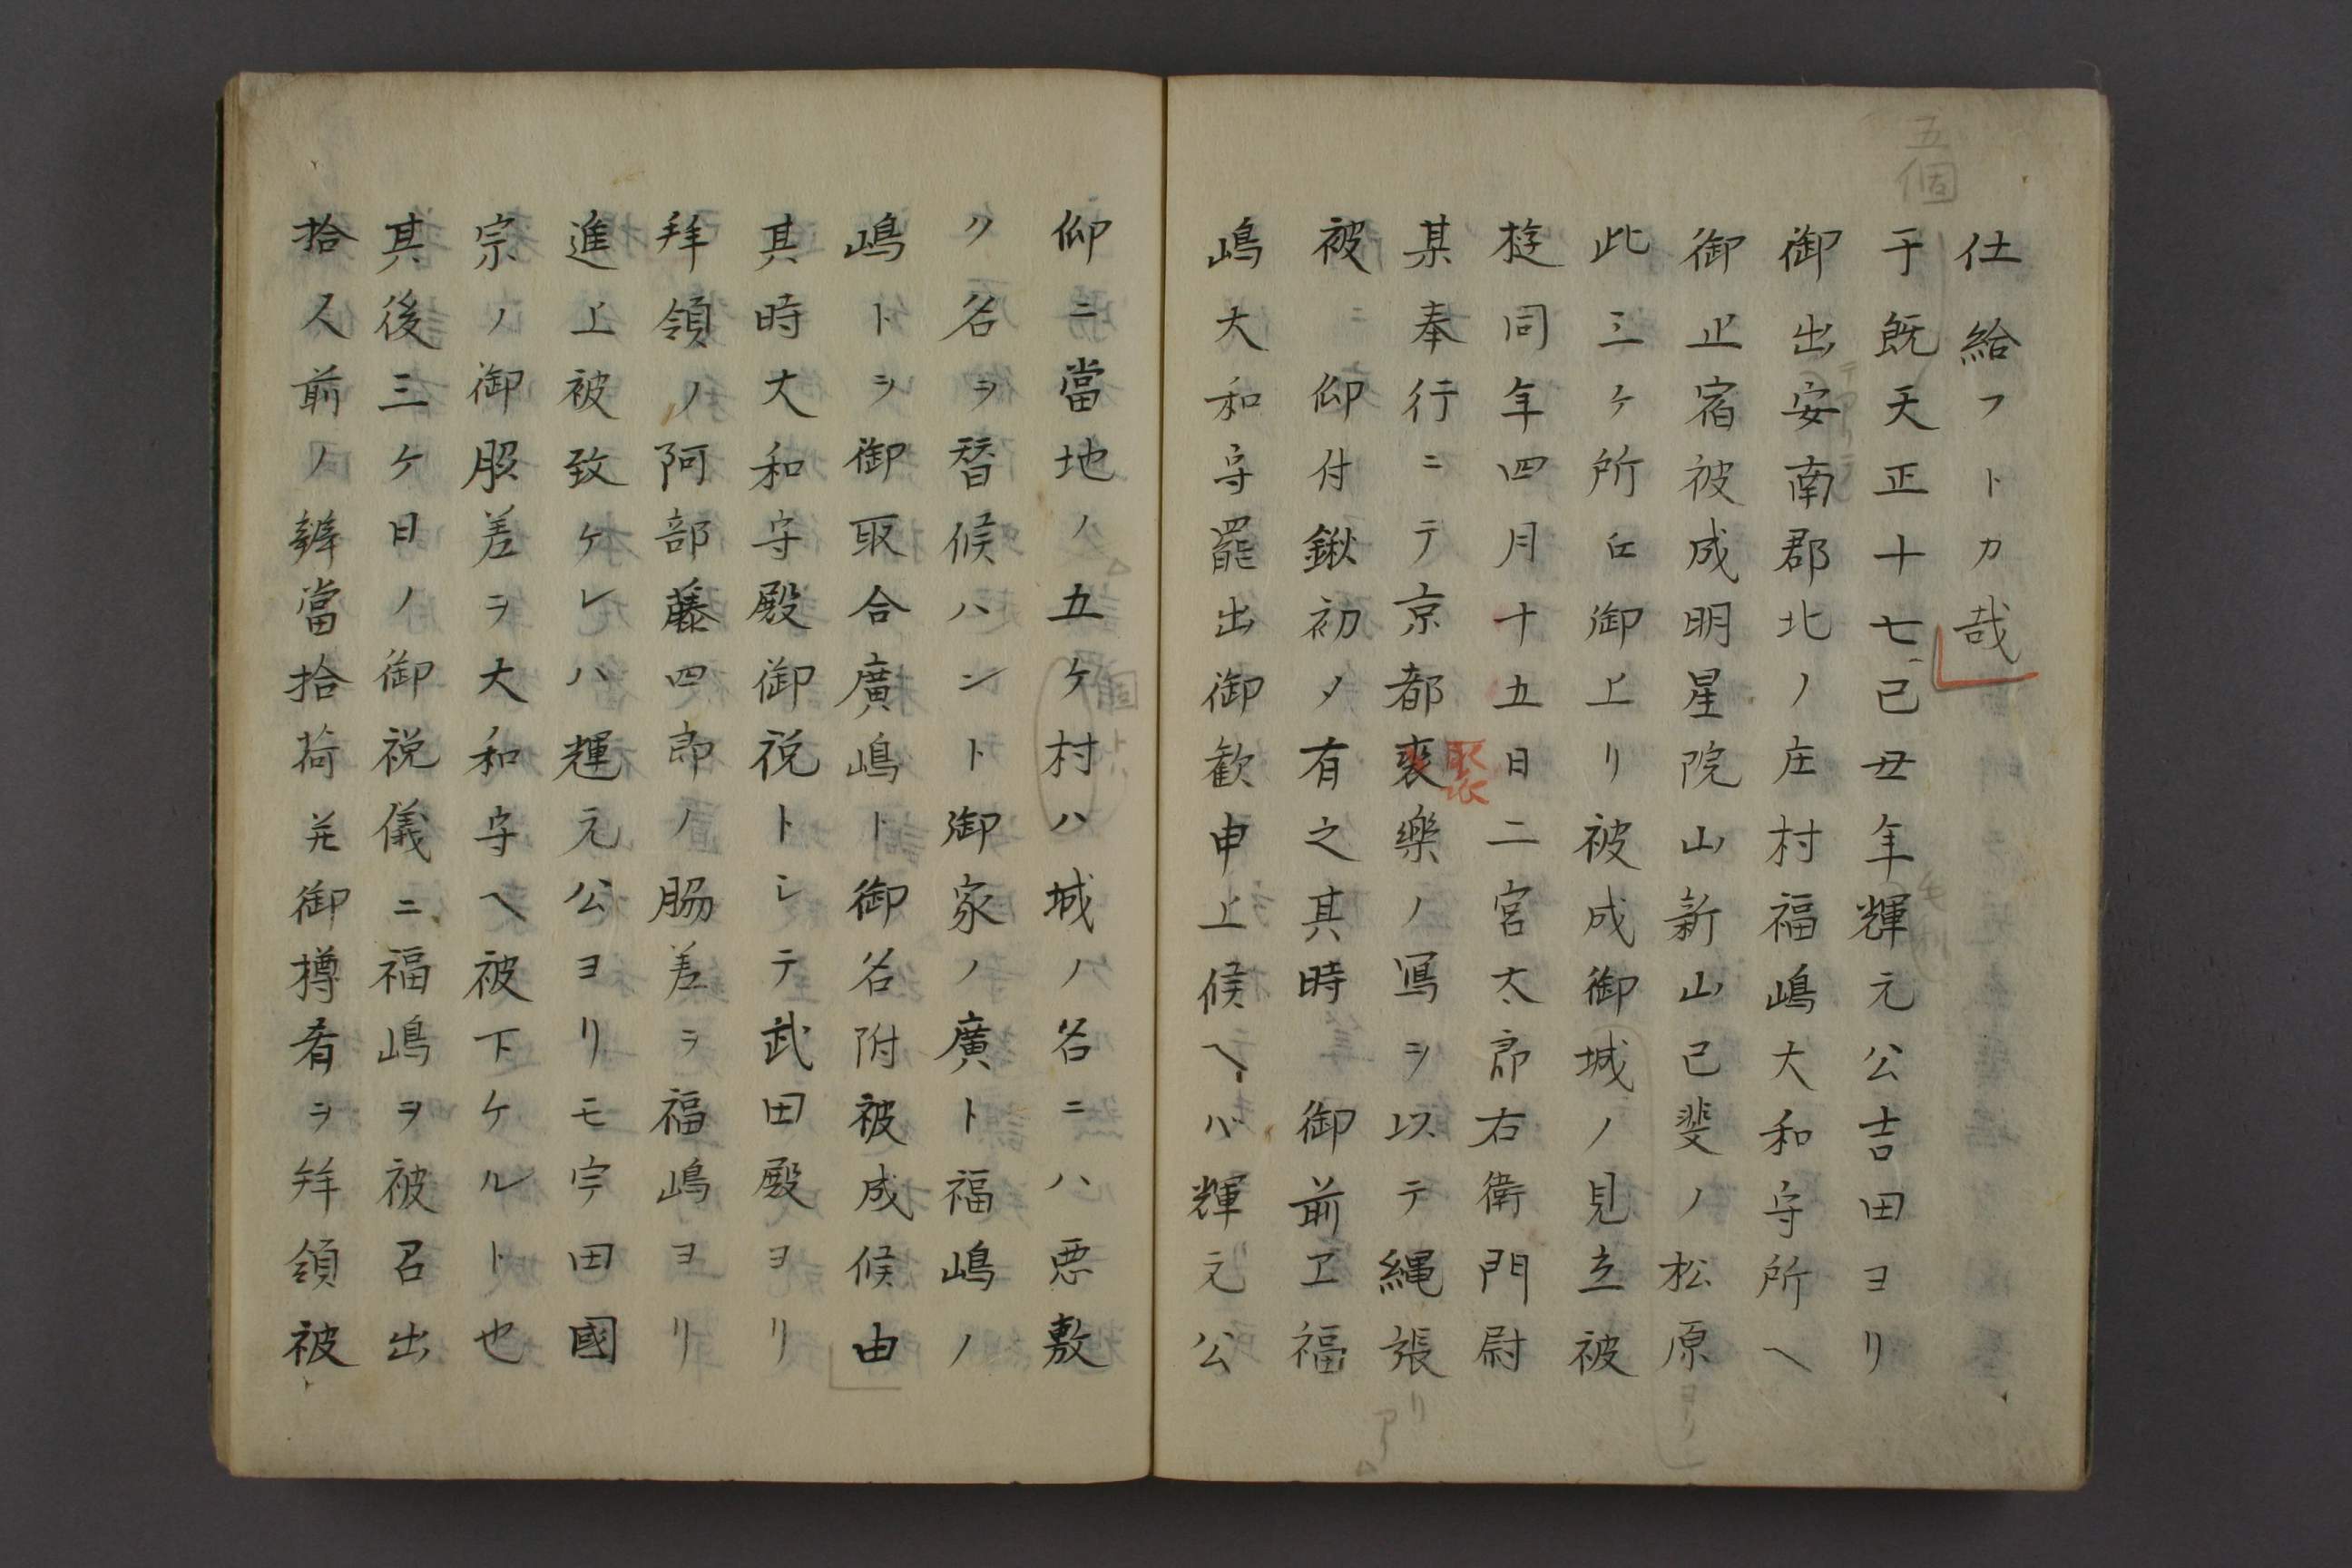 五個
仕給フトカ哉
于既天正十七己丑年輝元公吉田ヨリ
御出安南郡北ノ庄村福嶋大和守所ヘ
御止宿被成明星院山新山己斐ノ松原
此三ケ所江御上リ被成御城ノ見立被
遊同年四月十五日二宮太郎右衛門尉
某奉行ニテ京都裛樂ノ寫ヲ以テ縄張
聚
被　仰付鍬初メ有之其時　御前ヱ福
嶋大和守罷出御歓申上候ヘバ輝元公
仰ニ當地ノ五ケ村ハ城ノ名ニハ悪敷
ク名ヲ替候ハント御家ノ廣ト福嶋ノ
嶋トヲ御取合廣嶋ト御名附被成候由
其時大和守殿御祝トシテ武田殿ヨリ
拜領ノ阿部藤四郎ノ脇差ヲ福嶋ヨリ
進上被致ケレハ輝元公ヨリモ宇田國
宗ノ御服差ヲ大和守ヘ被下ケルト也
其後三ケ日ノ御祝儀ニ福嶋ヲ被召出
拾人前ノ辨當拾荷并御樽肴ヲ拜領被